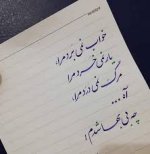 خواب نمی بَرد مرا،
یار نمی خرد مرا،
مرگ نمی دَرد مرا،
آه ...
چه بی بها شدم!